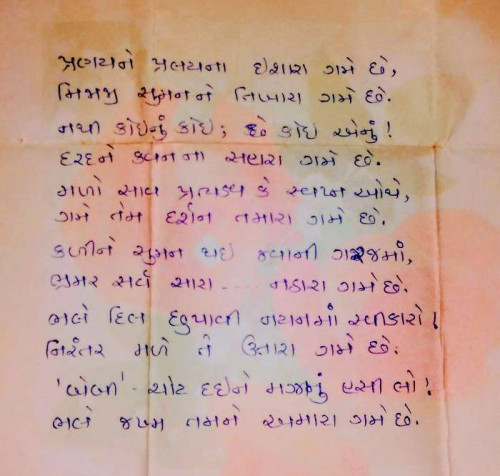 પ્રણયને પ્રલયના ઈશારા ગમે છે,
મિજાજી સુમનને તિખારા ગમે છે.
નથી કોઈનું કોઈ; છે કોઈ એનું!
દરદને કવનના સહારા ગમે છે.
મળો સાવ પ્રત્યક્ષ કે સ્વપ્ન ઓથે,
ગમે તેમ દર્શન તમારા ગમે છે.
કળીને સુમન થઈ જવાની ગરજમાં,
ભ્રમર સર્વ સારા ..... નઠારા ગમે છે.
ભલે દિલ છુપાવી નયનમાં સ્વીકારો!
નિરંતર મળે તે ઉતારા ગમે છે.
ચોટ દઈને મજાનું હસી લો!
ભલે જખમ તમને અમારા ગમે છે.